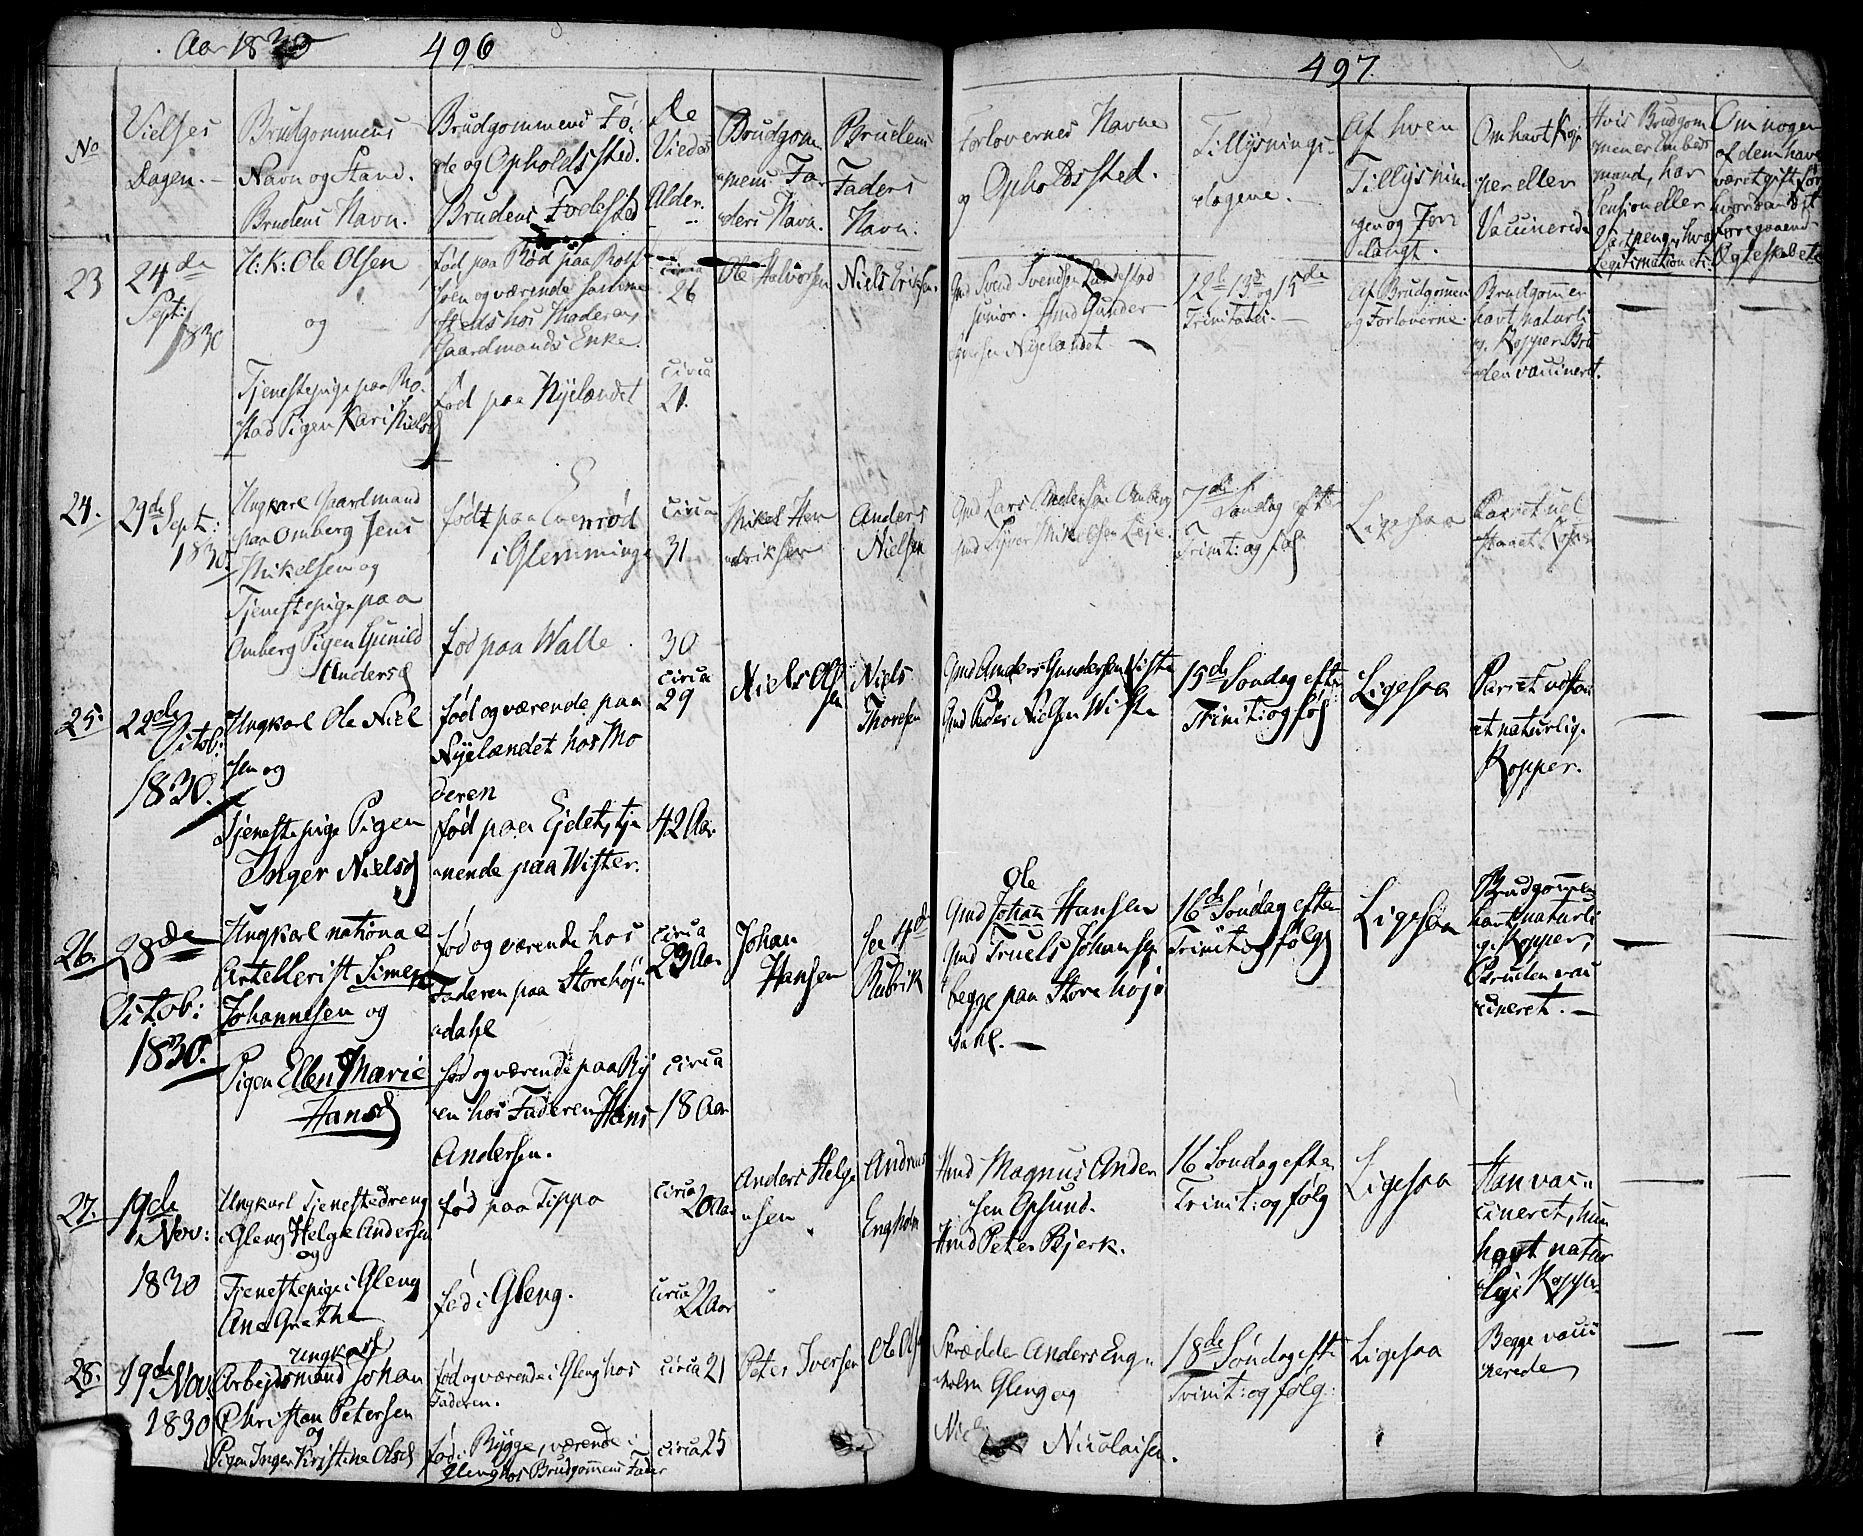 Aar 1830
496
No
Vielses
Dagen.
Brudgommens
Navn og Stand.
Brudens Navn.
Brudgommens Fø-
de og Opholdssted.
Brudens Fødested
De
Viedes
Alder.
Brudgom
mens Fa-
ders Navn.
Brudens
Faders
Navn.
23
24de
Sept:
1830
U: K: Ole Olsen
og
Tjenestepige paa
stad Pigen Kari Niels
fød paa Rød paa Rolf
søen og værende samme
steds hos Moderen,
Gaardmands Enke
fød paa Nyelændet
circa
26
circa
21.
Ole Halvorsen
Niels Eriksen.
24.
29de Sept:
1830
Ungkarl Gaardmand
paa Omberg Jens
Mikelsen og
Tjenestepige paa
Omberg Pigen Gunild
Andersd
født paa Evenrød
i Glemminge
fød paa Walle
circa
31
30
Mikel Hen
driksen
Anders
Nielsen
25.
22de
Octob:
1830.
Ungkarl Ole Niel
sen og
Tjenestepige Pigen
Inger Nielsd
fød og værende paa
Nyelændet hos Mo
deren
fød paa Ejdet, tje
nende paa Wister.
circa
29
42 Aar
Niels Ol
sen
Niels
Thoresen
26.
28de
Octob:
1830.
Ungkarl national
Artellerist Simen
Johannesen og
Pigen Ellen Marie
Hansd
fød og værende hos
Faderen paa Storehøj
dahl
fød og værende paa Ry
en hos Faderen Hans
Andersen.
circa
23 Aar
circa
18 Aar
Johan
Hansen
see 4de
Rubrik
27.
19de
Nov:
1830
Ungkarl Tjenestedreng
i Gleng Helge Andersen
og
Tjenestepige i Gleng
Ane Grethe
fød paa Tippa
fød i Gleng.
circa
20 Aar
circa
22 Aar
Anders Helge
sen
Andreas
Engholm
28.
19de Nov:
1830
Ungkarl
Arbejdsmand Johan
Christian Petersen
og
Pigen Inger Kristine Olsd
fød og værende i Gleng hos
Faderen.
fød i Rygge, værende i
Gleng hos Brudgommens Fader
circa 21
circa 25
Peter Iversen
Ole Ols
497
Forlovernes Navne
og Opholdssted.
Tillysnings-
dagene.
Af hvem
Tillysnin-
gen og For
langt.
Om havt Kop
per eller
Vaccinerede
Hvis Brudgom
men er Embeds
mand, har
Pension eller
Vartpenge, hvad
Legitimation etc:
Om nogen
af dem have
været gift før
hvorvandt
foregaaende
Ægteskab etc
Gmd Svend Svendsen Landstad
junior. Hmd Gunder
Iversen Nyelændet
12te 13de og 15de
Trinitatis.
Af Brudgommen
og Forloverne.
Brudgommen
havt naturli
ge Kopper Bru
den vaccineret.
Gmd Lars Andersen Omberg
Gmd Syver Mikelsen Leje.
7de
Søndag efter
Trinit: og føl
Ligesaa
Parret ud
staaet Kopper
Gmd Anders Gundersen Wister
Gmd Peder Nielsen Wister
15de Søndag efter
Trinit: og følg
Ligesaa
Parret udsta
et naturlige
Kopper.
Ole
Gmd Johan Hansen
Gmd Truels Johansen
begge paa Store høj
dahl.
16de Søndag efter
Trinit: og følg
Ligesaa
Brudgommen
havt naturli
ge Kopper,
Bruden vac
cineret.
Hmd Magnus Ander
sen Opsund.
Hmd Peter Bjerk.
16 Søndag efter
Trinit: og følg
Ligesaa
Han vac-
cineret, hun
havt natur
lige Kopper
Skrædder Anders Eng-
holm Gleng og
Nikolaisen.
18de Søndag eft
Trinit: og følg:
Ligesaa
Begge vacci
nerede